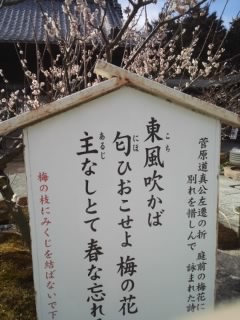 菅原道真公左遷の折 庭前の梅花に
別れを惜しんで 詠まれた詩
東風吹かば
こち
匂ひおこせよ 梅の花
にほ
主なしとて 春な忘れ
あるじ
梅の枝にみくじを結ばないで下